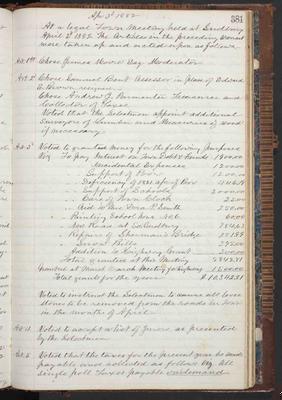 Apr 3d 1882
381
At a legal Town Meeting held at Sudbury
April 3d 1882. The Articles in the preceding Warrant
were taken up and acted upon as follows.
Art. 1st Chose James Moore Esq. Moderator
Art. 2d Chose Samuel Bent Assessor in place of
E. Brown resigned
Chose Andrew J. Parmenter Treasurer and
Collector of Taxes
Voted that the Selectmen appoint additional
Surveyors of Lumber and Measurers of Wood
if necessary.
Art. 3d Voted to granted money for the following purposes
Viz. To pay Interest on Town Debt & Bonds 1900.00
" Incidental Expenses 1200.00
" Support of Poor 1200.00
" Deficiency of 1881 for Poor
" Support of Schools 2000.00
" Care of Town Clock
" Aid to Mrs.
" Painting School house No 6 60.00
" New Road at So Sudbury
" Repairs of Sherman's Bridge
" Town Bells
" Addition to Highway Grant
Total granted at this Meeting
Granted at March Meeting for highways
Total grant for the year
Voted to instruct the Selectmen to cause all loose
stones to be removed from the roads in town
in the month of April
Art. 4. Voted to accept a list of Jurors as presented
by the Selectmen
Art. 5. Voted that the taxes for the present year be made
payable and collected as follows Viz. All
single poll Taxes payable on demand